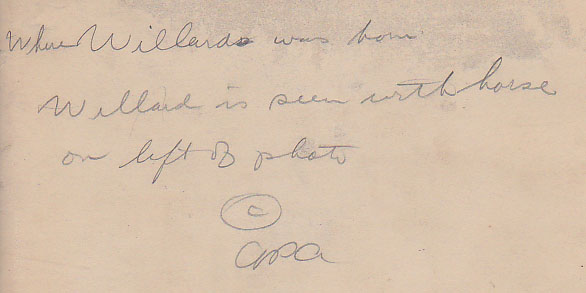 Where Willard was born
Willard is seen with horse
on left of photo
©